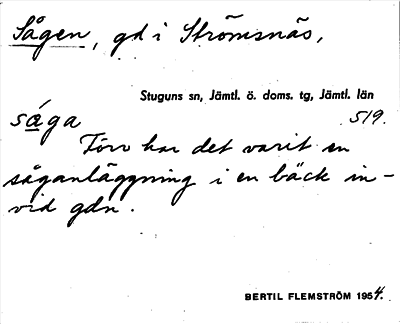 Sågen, gd i Strömsnäs,
Stuguns sn, Jämtl. ö. doms. tg, Jämtl. län
såga 519.
Förr har det varit en
såganläggning i en bäck in-
vid gdn.
BERTIL FLEMSTRÖM 1954.